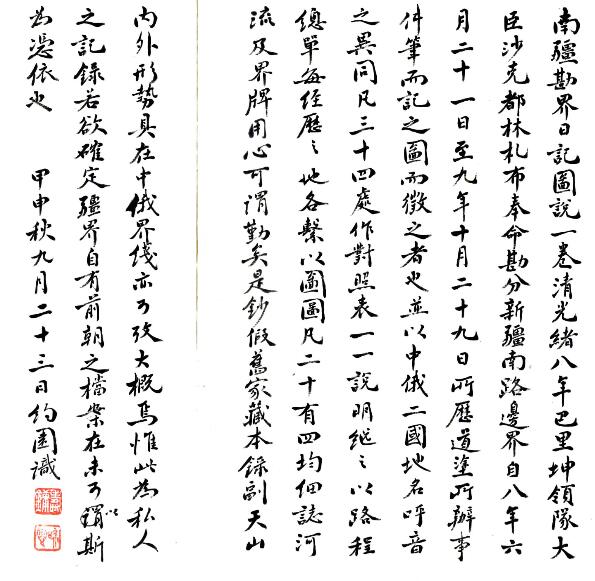 南疆勘界日記圖說一卷清光緒八年巴里坤領隊大
臣沙克都林札布奉命勘分新疆南路邊界自八年六
月二十一日至九年十月二十九日所歷道塗所辦事
件筆而記之圖而徵之者也並以中俄二國地名呼音
之異同凡三十四處作對照表一一說明繼之以路程
總單每經歷之地各繫以圖圖凡二十有四均細誌河
流及界牌用心可謂勤矣是鈔假舊家藏本錄副天山
內外形勢具在中俄界綫亦可攷大概焉惟此為私人
之記錄若欲確定疆界自有前朝之檔案在未可以謂斯
為憑依也 甲申秋九月二十三日約園識